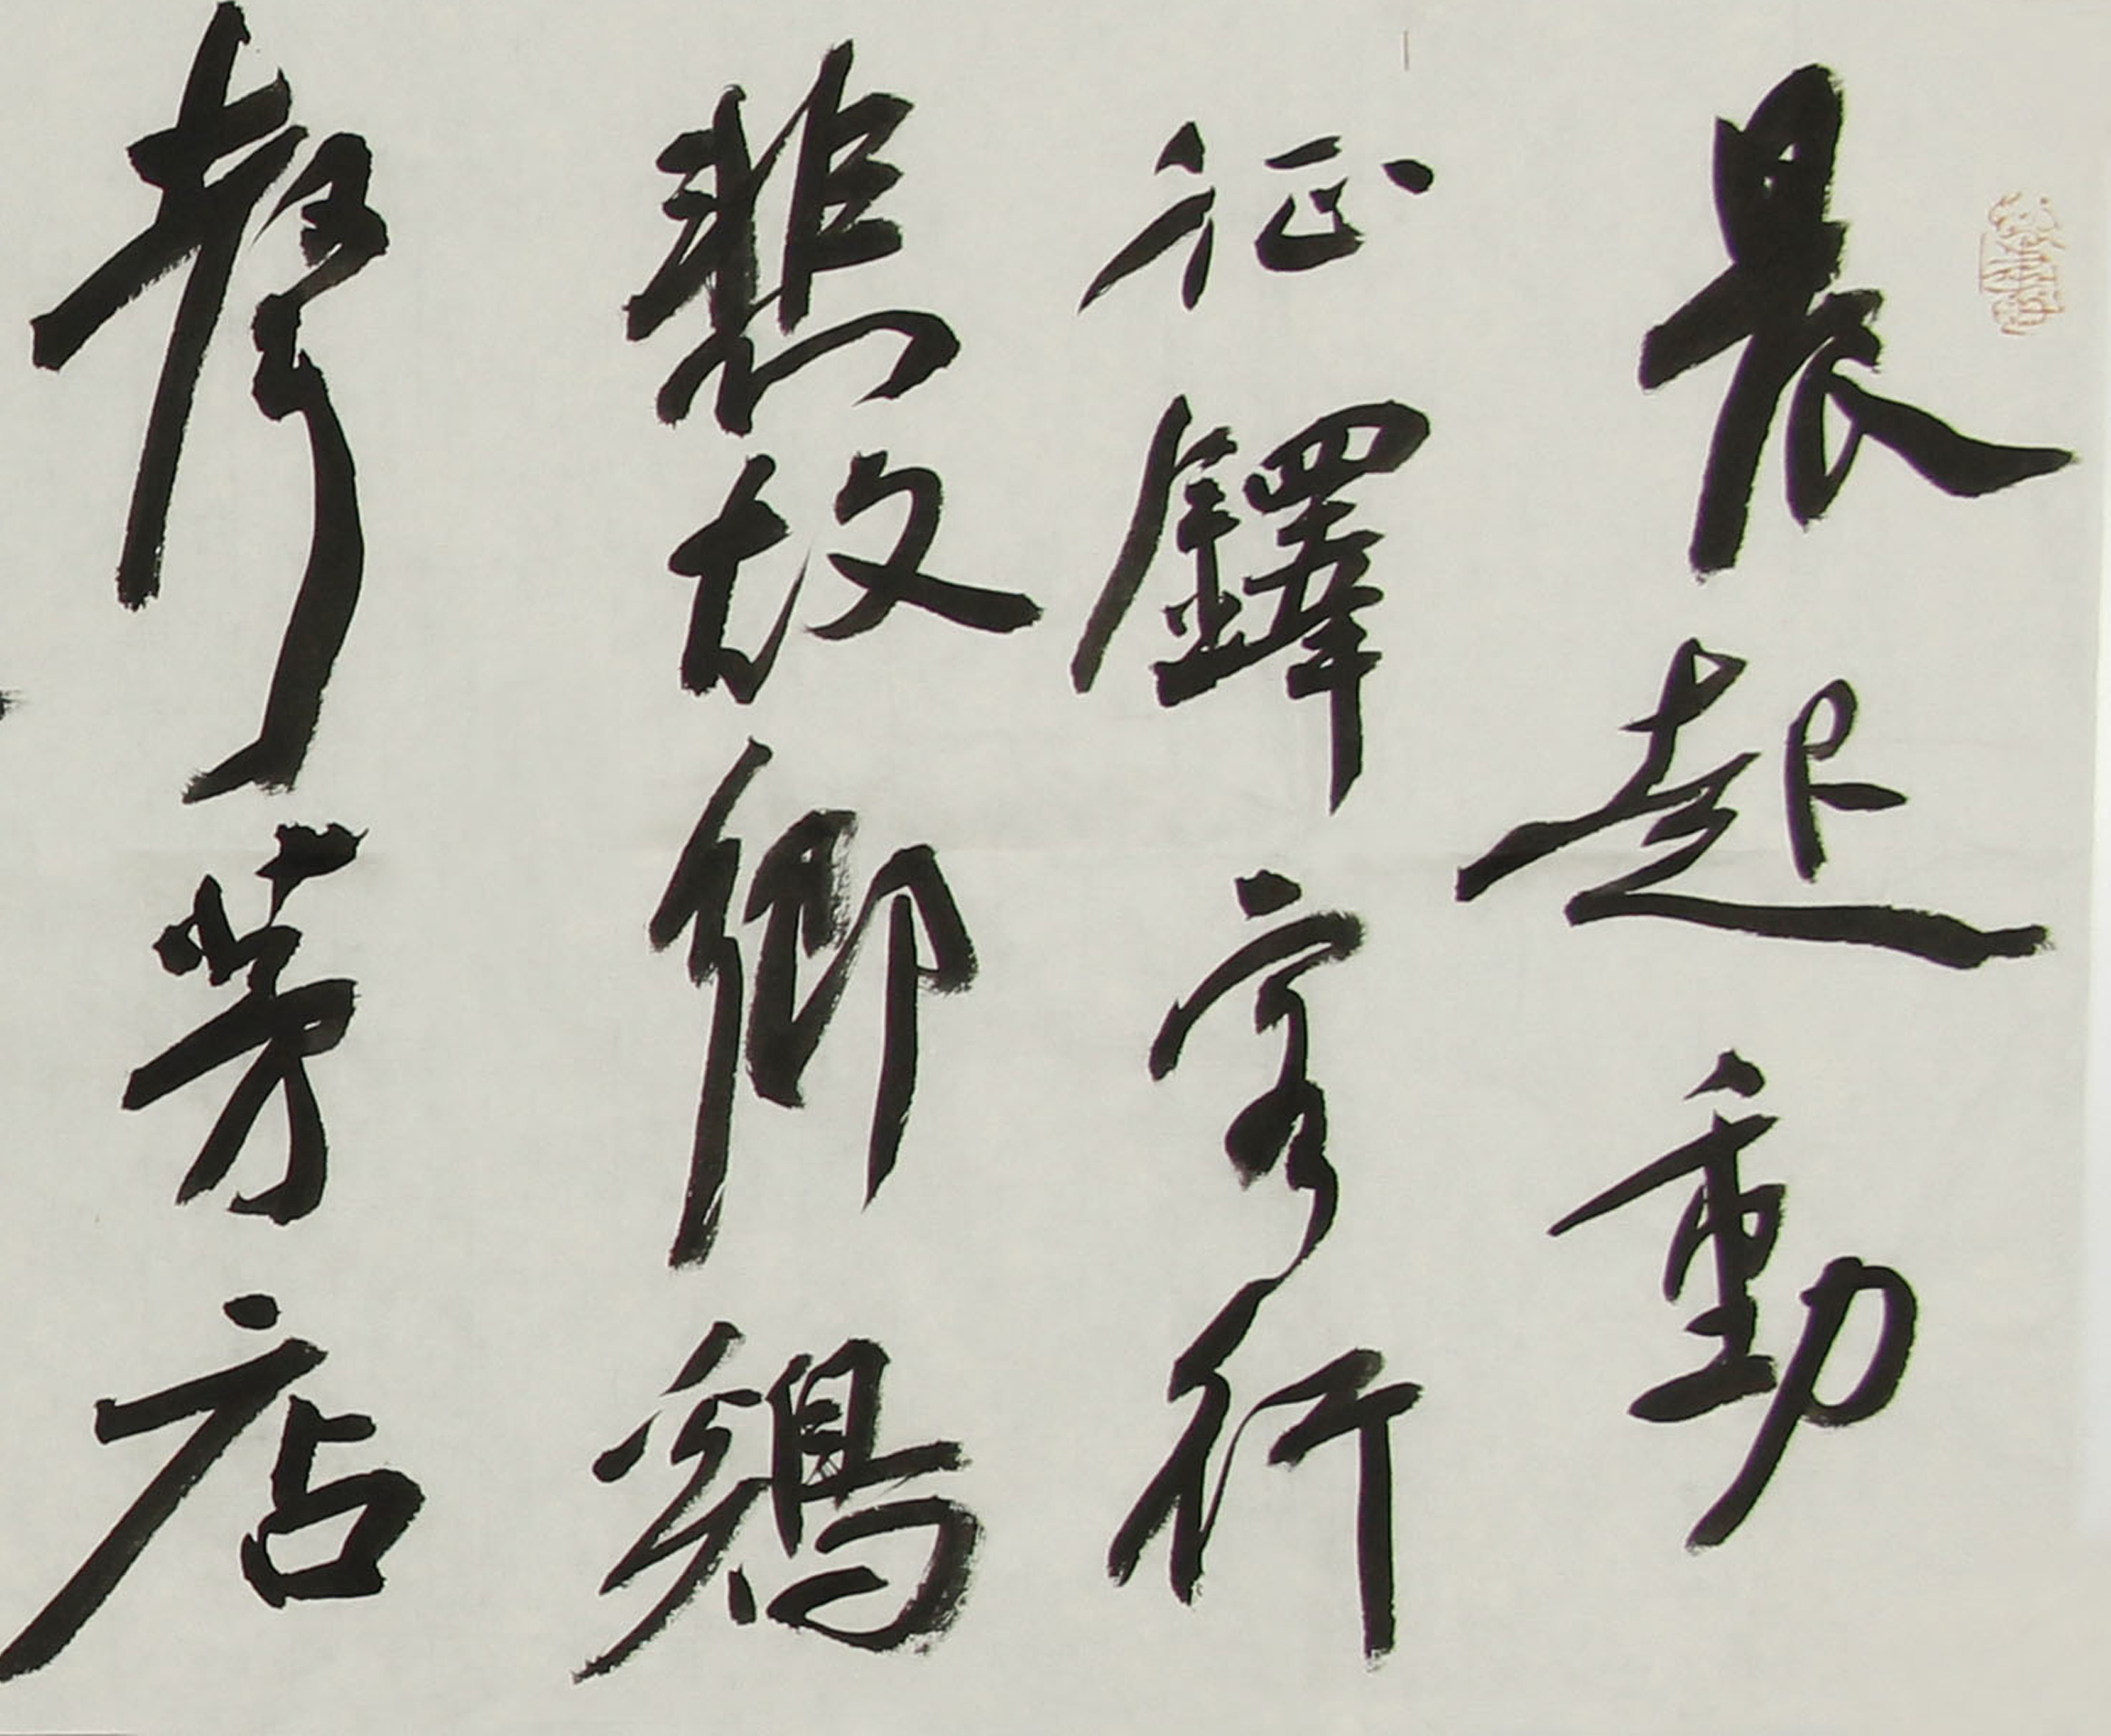 晨起動
征鐸客行
悲故鄉鷄
聲茅店